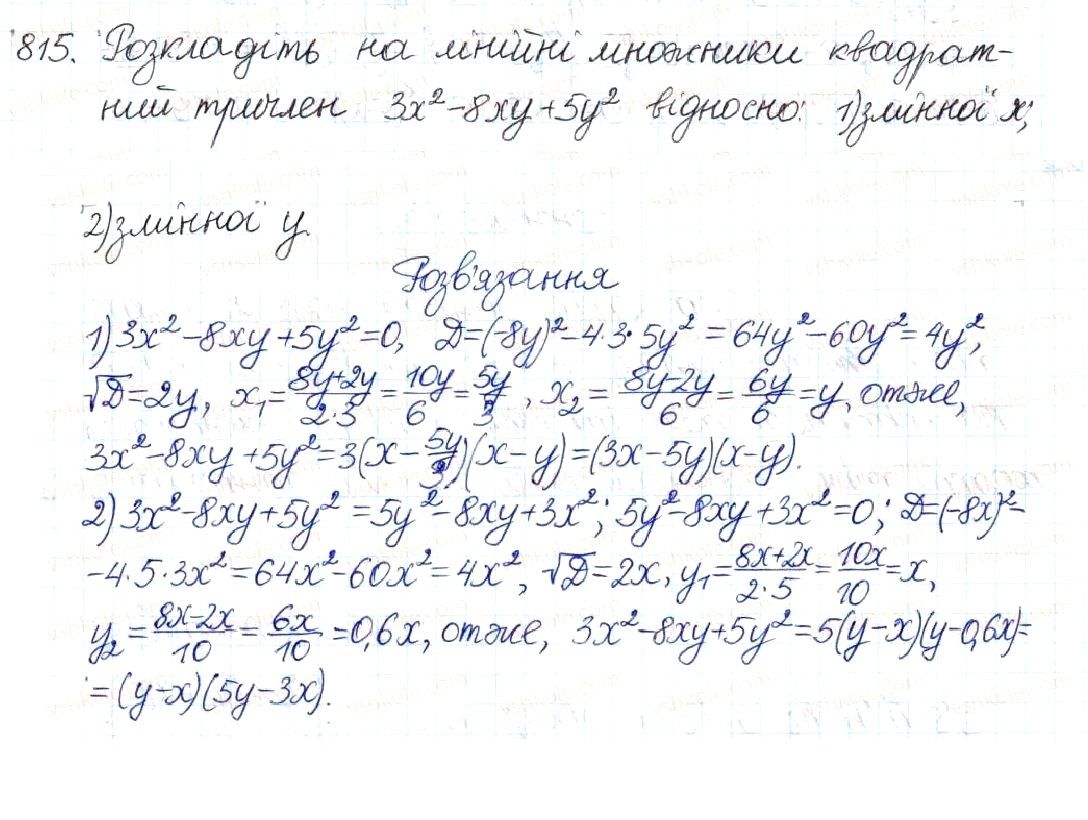 815. Розкладіть на лінійні множники квадрат-
ний тричлен 3x²-8xy+5y² відносно: 1) змінної x;
2) змінної y.
Розв'язання
1) 3x²-8xy+5y²=0, D=(-8y)²-4·3·5y²=64y²-60y²=4y²,
√D=2y, x₁=(8y+2y)/(2·3)=10y/6=5y/3, x₂=(8y-2y)/6=6y/6=y, отже,
3x²-8xy+5y²=3(x-5y/3)(x-y)=(3x-5y)(x-y).
2) 3x²-8xy+5y²=5y²-8xy+3x²; 5y²-8xy+3x²=0; D=(-8x)²-
-4·5·3x²=64x²-60x²=4x², √D=2x, y₁=(8x+2x)/(2·5)=10x/10=x,
y₂=(8x-2x)/10=6x/10=0,6x, отже, 3x²-8xy+5y²=5(y-x)(y-0,6x)=
=(y-x)(5y-3x).